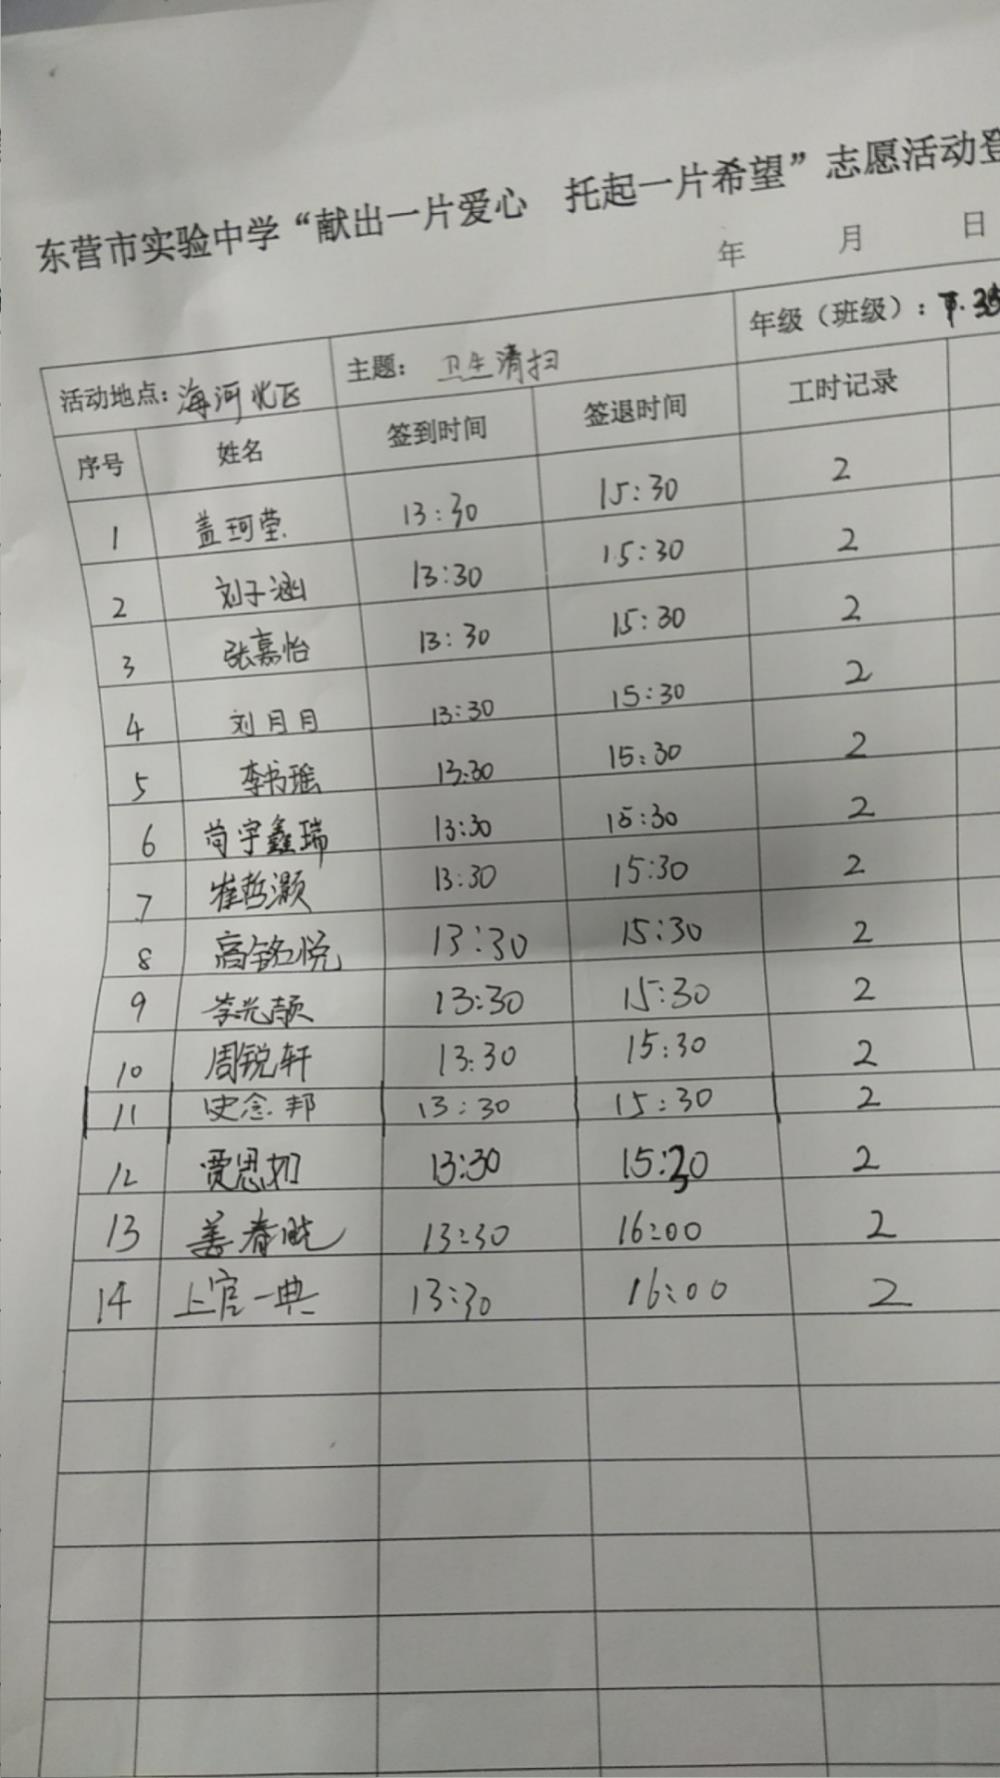 东营市实验中学“献出一片爱心 托起一片希望”志愿活动登
年 月 日
活动地点：海河北区 主题：卫生清扫 年级（班级）：
序号 姓名 签到时间 签退时间 工时记录
1 盖珂莹 13:30 15:30 2
2 刘子涵 13:30 15:30 2
3 张嘉怡 13:30 15:30 2
4 刘月月 13:30 15:30 2
5 李书瑶 13:30 15:30 2
6 苟宇鑫瑞 13:30 15:30 2
7 崔哲灏 13:30 15:30 2
8 高铭悦 13:30 15:30 2
9 李光颉 13:30 15:30 2
10 周锐轩 13:30 15:30 2
11 史念邦 13:30 15:30 2
12 贾思 13:30 15:30 2
13 姜春 13:30 16:00 2
14 上官一典 13:30 16:00 2